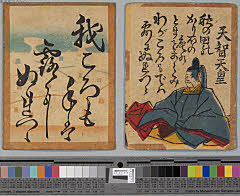 天智天皇
秋の田の
かりほの庵の
とまをあらみ
わがころもでは
露にぬれつゝ
我ころも
手は
露に
ぬれつゝ